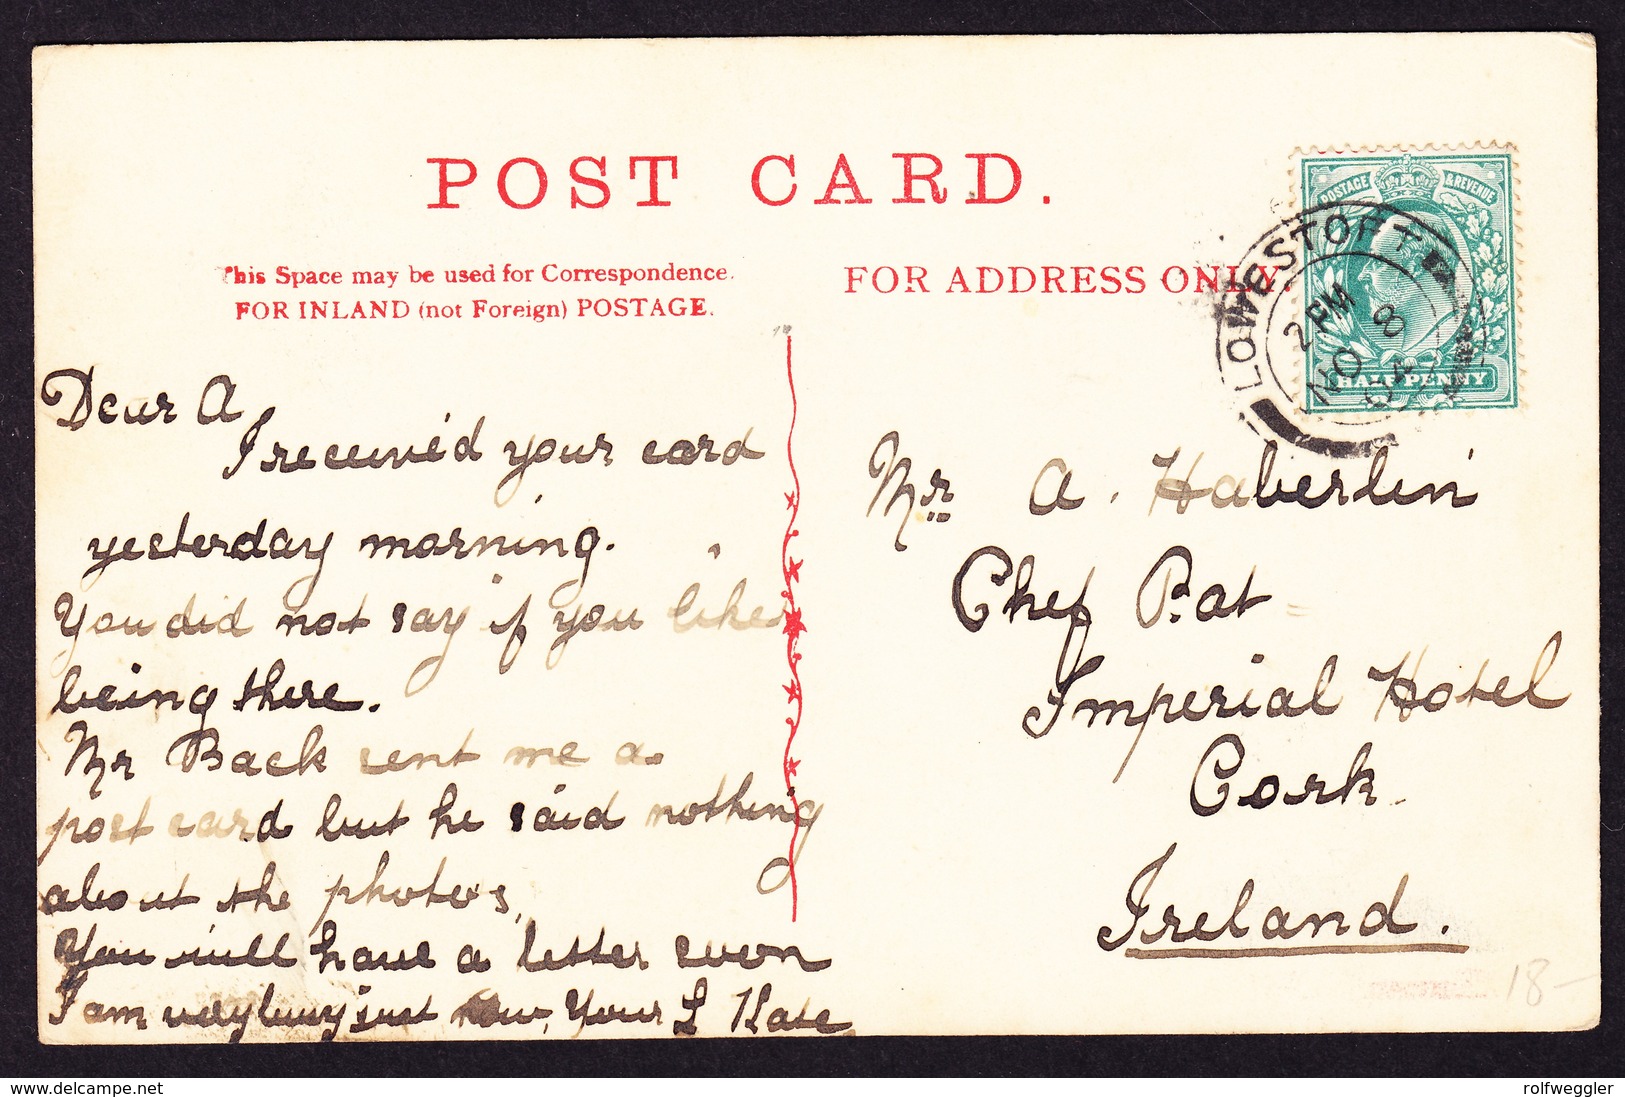 POST CARD.
This Space may be used for Correspondence.
FOR INLAND (not Foreign) POSTAGE.
FOR ADDRESS ONLY
POSTAGE & REVENUE
HALFPENNY
LOWESTOFT
2 PM
NO 8
Dear A
I received your card
yesterday morning.
You did not say if you like
being there.
Mr Back sent me a
post card but he said nothing
about the photos,
You will have a letter soon
I am very busy just now, Your L Kate
Mr A. Haberlin
Chef Pat
Imperial Hotel
Cork.
Ireland.
18-
delcampe.net
rolfweggler